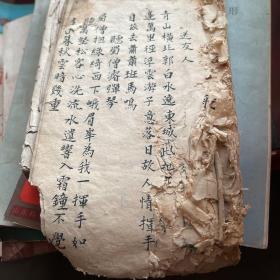 送友人
青山橫北郭白水遶東城此地
蓬萬里征浮雲游子意落日故人情揮手
自茲去蕭蕭班馬鳴
聽蜀僧濬彈琴
蜀僧抱綠綺西下峨眉峯為我一揮手如
聽萬壑松客心洗流水遺響入霜鐘不覺
碧山暮秋雲暗幾重